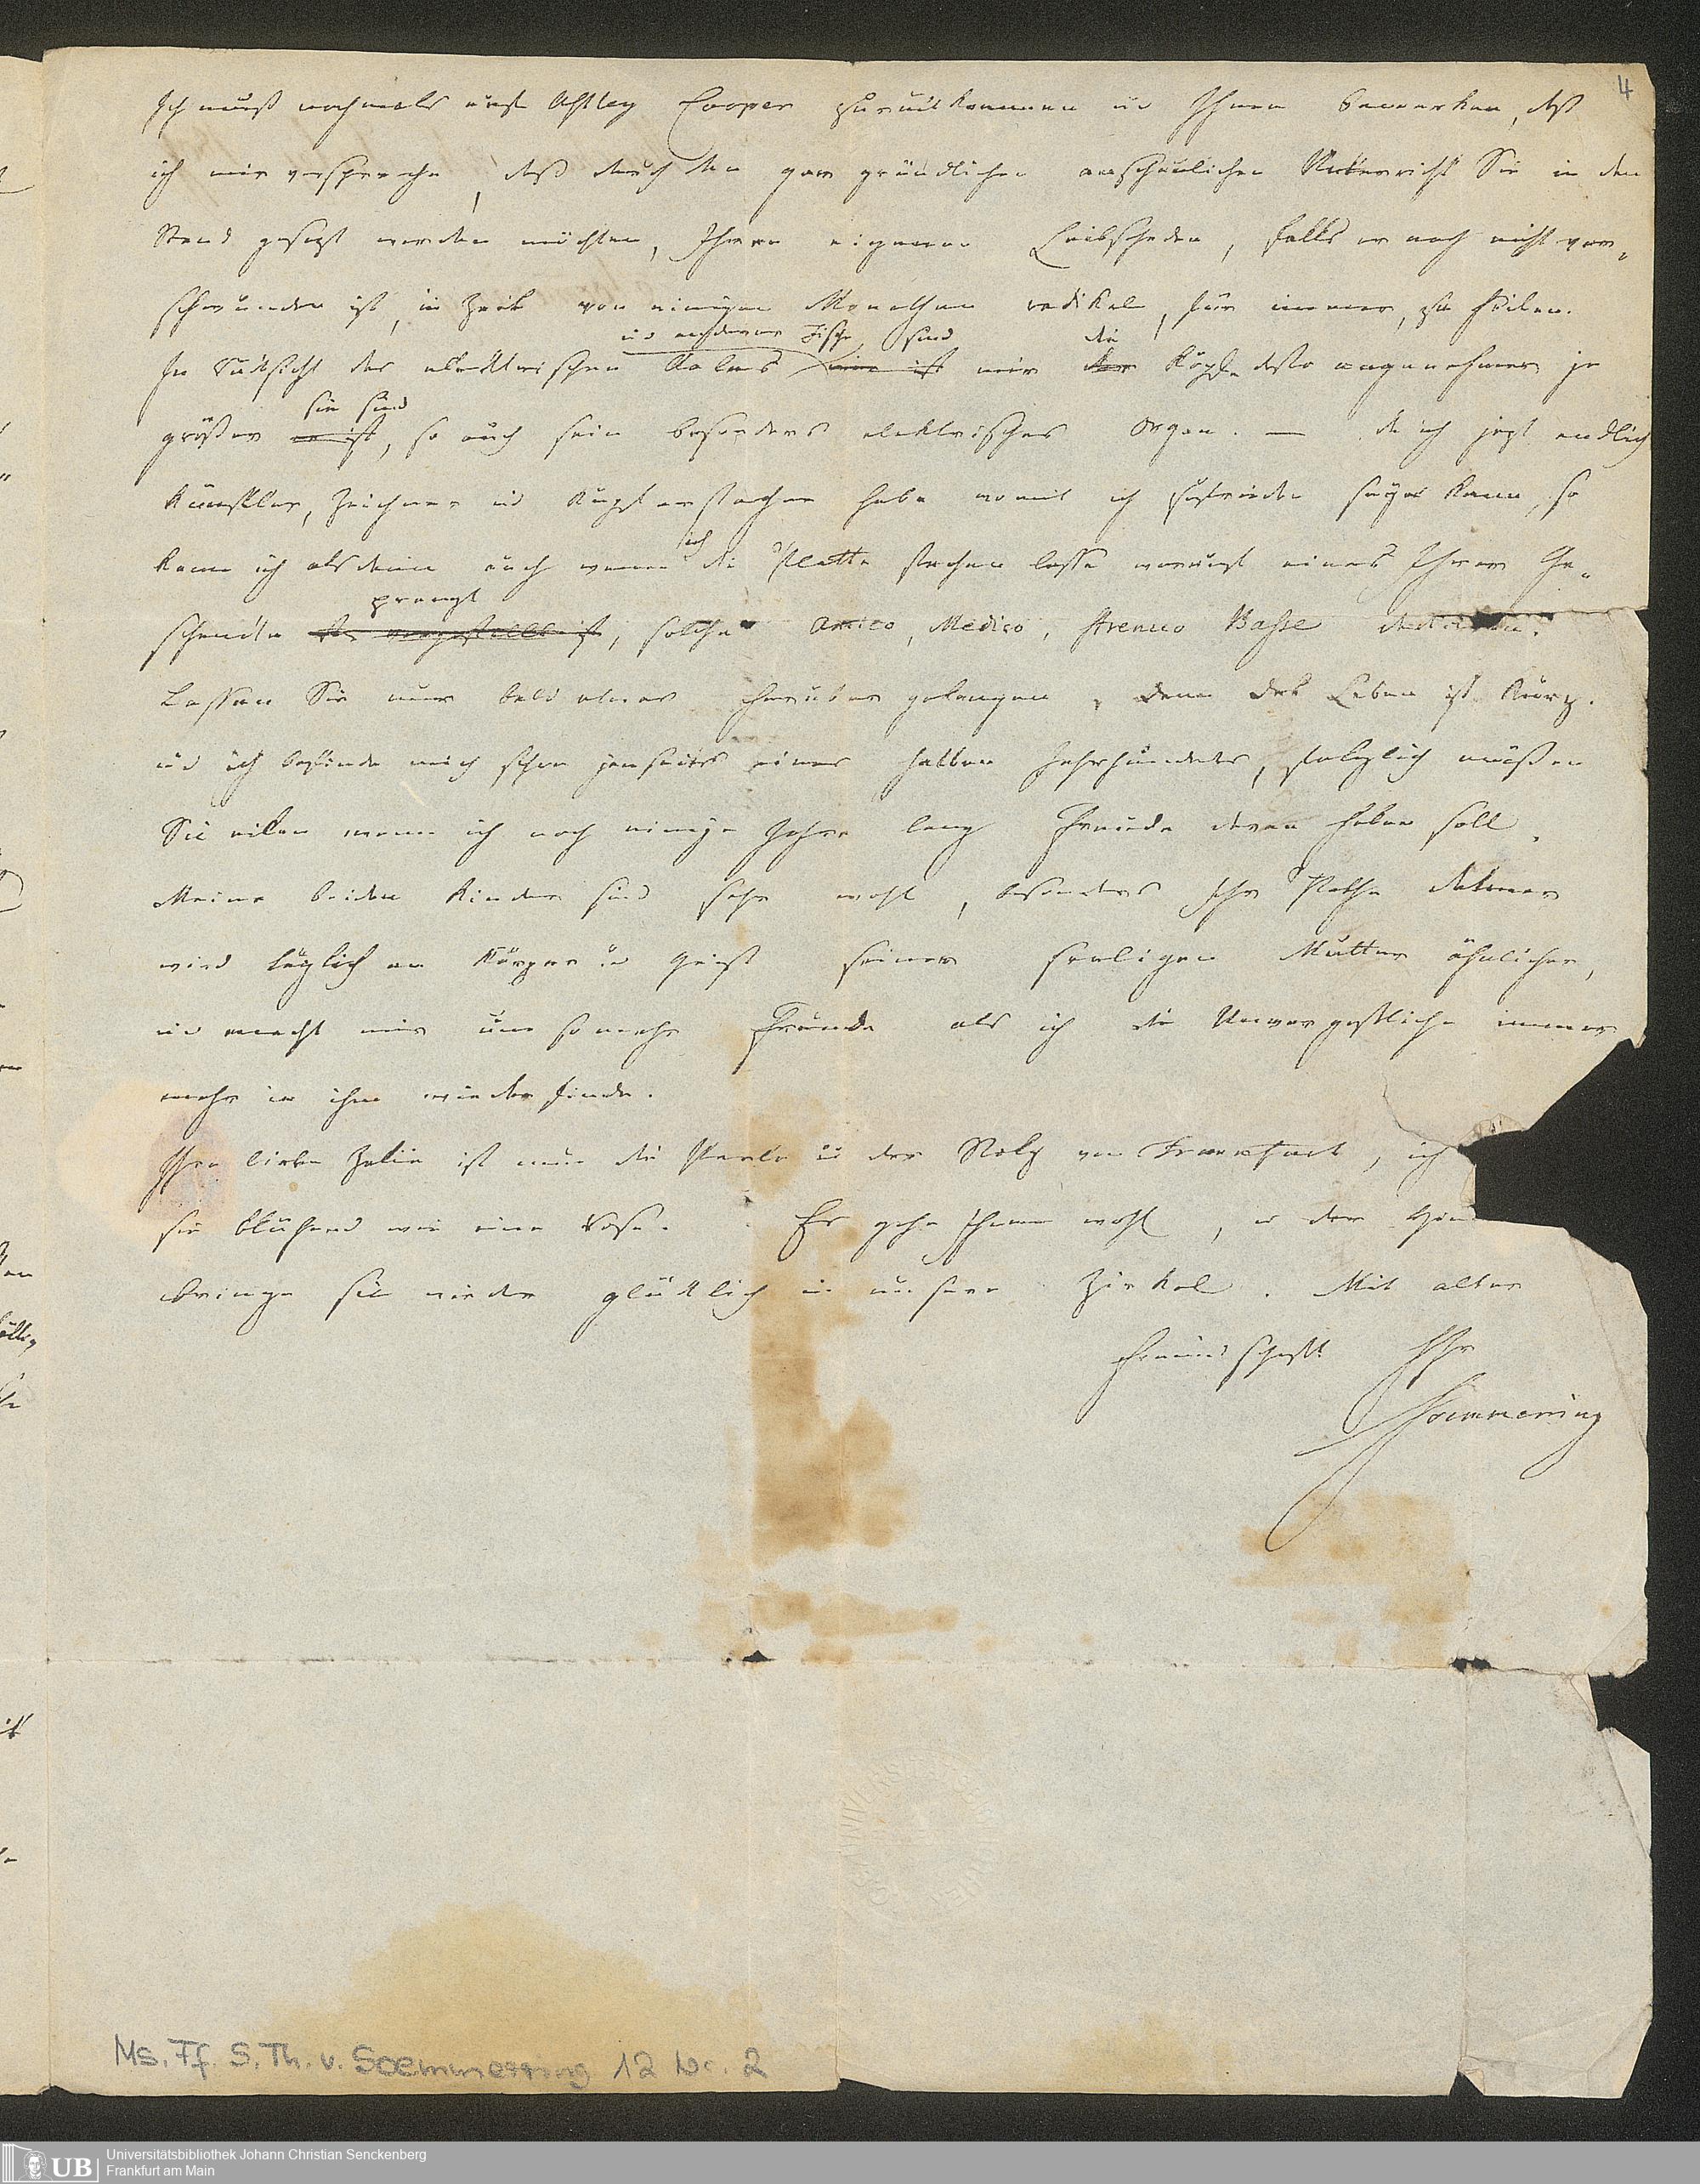 4
Ich muß nochmals auf Astley Cooper zurükkommen und Ihnen bemerken, daß
ich mir verspreche, daß durch den gar gründlichen anschaulichen Unterricht Sie in den
Stand gesezt werden möchten, Ihren eigenen Leibschaden, falls er noch nicht ver-
schwunden ist, in Zeit von einigen Monathen radikal, für immer, zu heilen.
und anderer Fische sind die
In Rüksicht des elektrischen Aales mir der Köpfe desto angenehmer je
sie sind
größer er ist, so auch sein besonders elektrisches Organ. — da ich jezt endlich
Künstler, Zeichner und Kupferstecher habe womit ich zufrieden seyn kann, so
ich
kann ich alsdann auch wenn die Platte stechen lasse worauf eines Ihrer Ge-
prangt
schenke vorgestellt ist, solche Amico, Medico, strenuo Basse
Lassen Sie nur bald etwas herüber gelangen, denn das Leben ist kurz.
und ich befinde mich schon jenseits eines halben Jahrhunderts, folglich müßen
Sie eilen wenn ich noch einige Jahre lang Freude daran haben soll.
Meine beiden Kinder sind sehr wohl, besonders Ihr Pathe Detmar
wird täglich an Körper und Geist seiner seeligen Mutter ähnlicher,
und macht mir um so mehr Freude als ich die Unvergeßliche immer
mehr in ihm wieder finde.
Ihre liebe ist nun die Perle und der Stolz von Frankfurt, ich
sie blühend wie eine Rose. Es gehe Ihnen wohl, und der
bringe sie wieder glüklich in unsern Zirkel. Mit alter
Freundschaft Ihr
Soemmerring
Ms. Ff. S. Th. v. Soemmerring 12 Nr. 2
UB Universitätsbibliothek Johann Christian Senckenberg
Frankfurt am Main